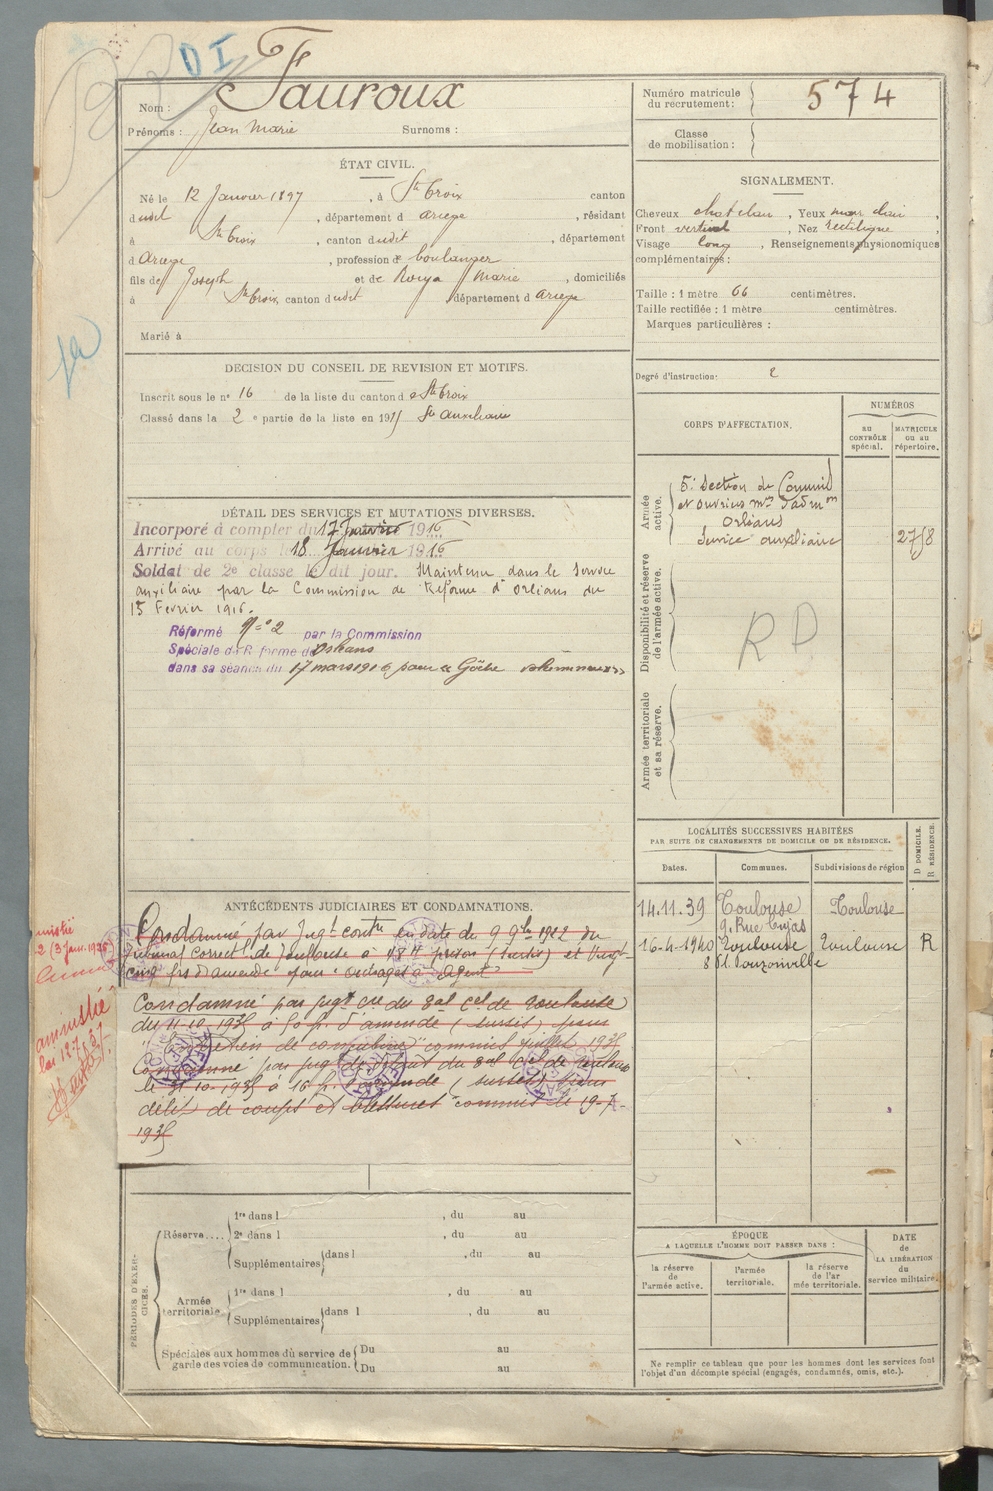 DI
Nom : Fauroux
Prénoms : Jean Marie Surnoms :
ÉTAT CIVIL.
Né le 12 Janvier 1897, à St Croix canton
dudit, département d Ariege, résidant
à St Croix, canton dudit, département
d Ariege, profession de boulanger
fils de Joseph et de Marie, domiciliés
à St Croix, canton dudit département d Ariege
Marié à
DECISION DU CONSEIL DE REVISION ET MOTIFS.
Inscrit sous le n° 16 de la liste du canton de St Croix
Classé dans la 2e partie de la liste en 1915 Sce Auxiliaire
DÉTAIL DES SERVICES ET MUTATIONS DIVERSES.
Incorporé à compter du 17 Janvier 1916
Arrivé au corps le 18 Janvier 1916
Soldat de 2e classe le dit jour. Maintenu dans le Service
auxiliaire par la Commission de Réforme d'Orléans du
15 Fevrier 1916.
Réformé n° 2 par la Commission
Spéciale de Réforme de Orléans
dans sa séance du 17 mars 1916 pour
ANTÉCÉDENTS JUDICIAIRES ET CONDAMNATIONS.
Condamné par Jugt contre en date du 9 9bre 1922 du
tribunal correct de Toulouse à 48 H prison (sursis) et vingt-
cinq frs d'amende pour "outrages à agent"
Condamné par jugt cre du bal cel de Toulouse
du 11-10-1935 à 50 f. d'amende (sursis) pour
commis juillet 1935
Condamné par jugt du bal cel de Toulouse
le 31-10-1935 à 16 f. d'amende (sursis) pour
délit de coups et blessures commis le 19-7-
1935
amnistié
loi 12.7.37
PÉRIODES D'EXERCICES.
Réserve.... 1re dans l , du au
2e dans l , du au
Supplémentaires dans l , du au
Armée territoriale 1re dans l , du au
Supplémentaires dans l , du au
Spéciales aux hommes du service de garde des voies de communication. Du au
Du au
Numéro matricule du recrutement : 574
Classe de mobilisation :
SIGNALEMENT.
Cheveux chat clair, Yeux marr clair,
Front vertical, Nez rectiligne,
Visage long, Renseignements physionomiques
complémentaires :
Taille : 1 mètre 66 centimètres.
Taille rectifiée : 1 mètre centimètres.
Marques particulières :
Degré d'instruction : 2
CORPS D'AFFECTATION.
NUMÉROS
au CONTRÔLE spécial.
MATRICULE ou au répertoire.
Armée active.
5e Section de Commis
et ouvriers mres d'adm on
Orléans
Service auxiliaire 2758
Disponibilité et réserve de l'armée active.
RD
Armée territoriale et sa réserve.
LOCALITÉS SUCCESSIVES HABITÉES
PAR SUITE DE CHANGEMENTS DE DOMICILE OU DE RÉSIDENCE.
D DOMICILE.
R RÉSIDENCE.
Dates. Communes. Subdivisions de région
14.11.39 Toulouse Toulouse
9, Rue
16-4-1940 Toulouse Toulouse R
8 Pl.
ÉPOQUE
A LAQUELLE L'HOMME DOIT PASSER DANS :
la réserve de l'armée active.
l'armée territoriale.
la réserve de l'ar mée territoriale.
DATE
de
LA LIBÉRATION
du
service militaire.
Ne remplir ce tableau que pour les hommes dont les services font
l'objet d'un décompte spécial (engagés, condamnés, omis, etc.).